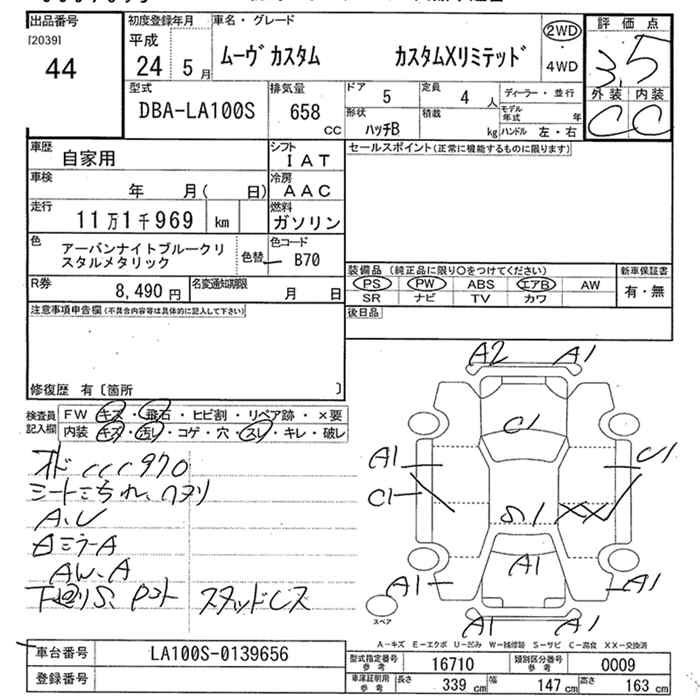 出品番号 初度登録年月 車名・グレード 評価点
[2039] 平成 ムーヴ カスタム カスタムXリミテッド 2WD 3.5
44 24 5月 ・4WD
型式 排気量 ドア 5 定員 4人 ディーラー・並行 外装 内装
DBA-LA100S 658 CC 形状 ハッチB 積載 kg モデル年式 年 C C
ハンドル 左・右
車歴 自家用 シフト IAT セールスポイント(正常に機能するものに限ります)
車検 年 月( 日) 冷房 AAC
走行 11万1千969 km 燃料 ガソリン
色 アーバンナイトブルークリスタルメタリック 色替 色コード B70
装備品 (純正品に限り○をつけてください) 新車保証書
R券 8,490円 名変通知期限 月 日 PS PW ABS エアB AW 有・無
SR ナビ TV カワ
注意事項申告欄(不具合内容等は具体的に記入して下さい) 後日品
修復歴 有〔箇所 〕
検査員記入欄 FW キズ・飛石・ヒビ割・リペア跡・×要
内装 キズ・汚レ・コゲ・穴・スレ・キレ・破レ
A2 A1
C1
A1 C1 U1
S1 XX
A1
A1 A1
A1 A1
シートこちれ、ヘタリ
A、U
ミラーA
AW、A
下廻りS、
スペア
A-キズ E-エクボ U-凹み W-補修跡 S-サビ C-腐食 XX-交換済
車台番号 LA100S-0139656 型式指定番号 参考 16710 類別区分番号 参考 0009
登録番号 車庫証明用 参考 長さ 339 cm 幅 147 cm 高さ 163 cm